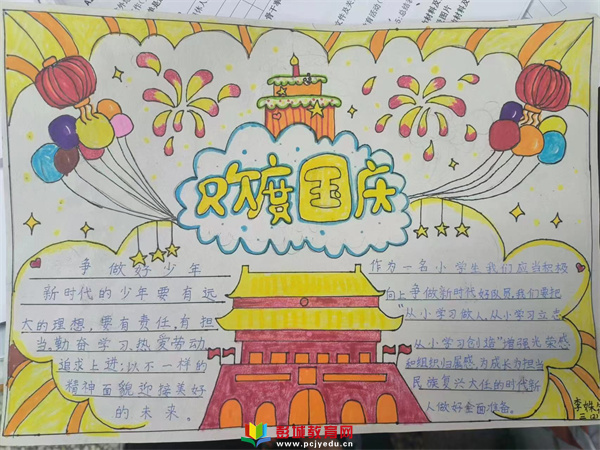 欢度国庆
争做好少年
新时代的少年要有远
大的理想，要有责任，有担
当。勤奋学习、热爱劳动
追求上进；以不一样的
精神面貌迎接美好
的未来。
作为一名小学生我们应当积极
向上争做新时代好队员，我们要把
“从小学习做人、从小学习立志
从小学习创造”增强光荣感
和组织归属感，为成长为担当
民族复兴大任的时代新
人做好全面准备。
李姝
彭城教育网
www.pcjyedu.cn